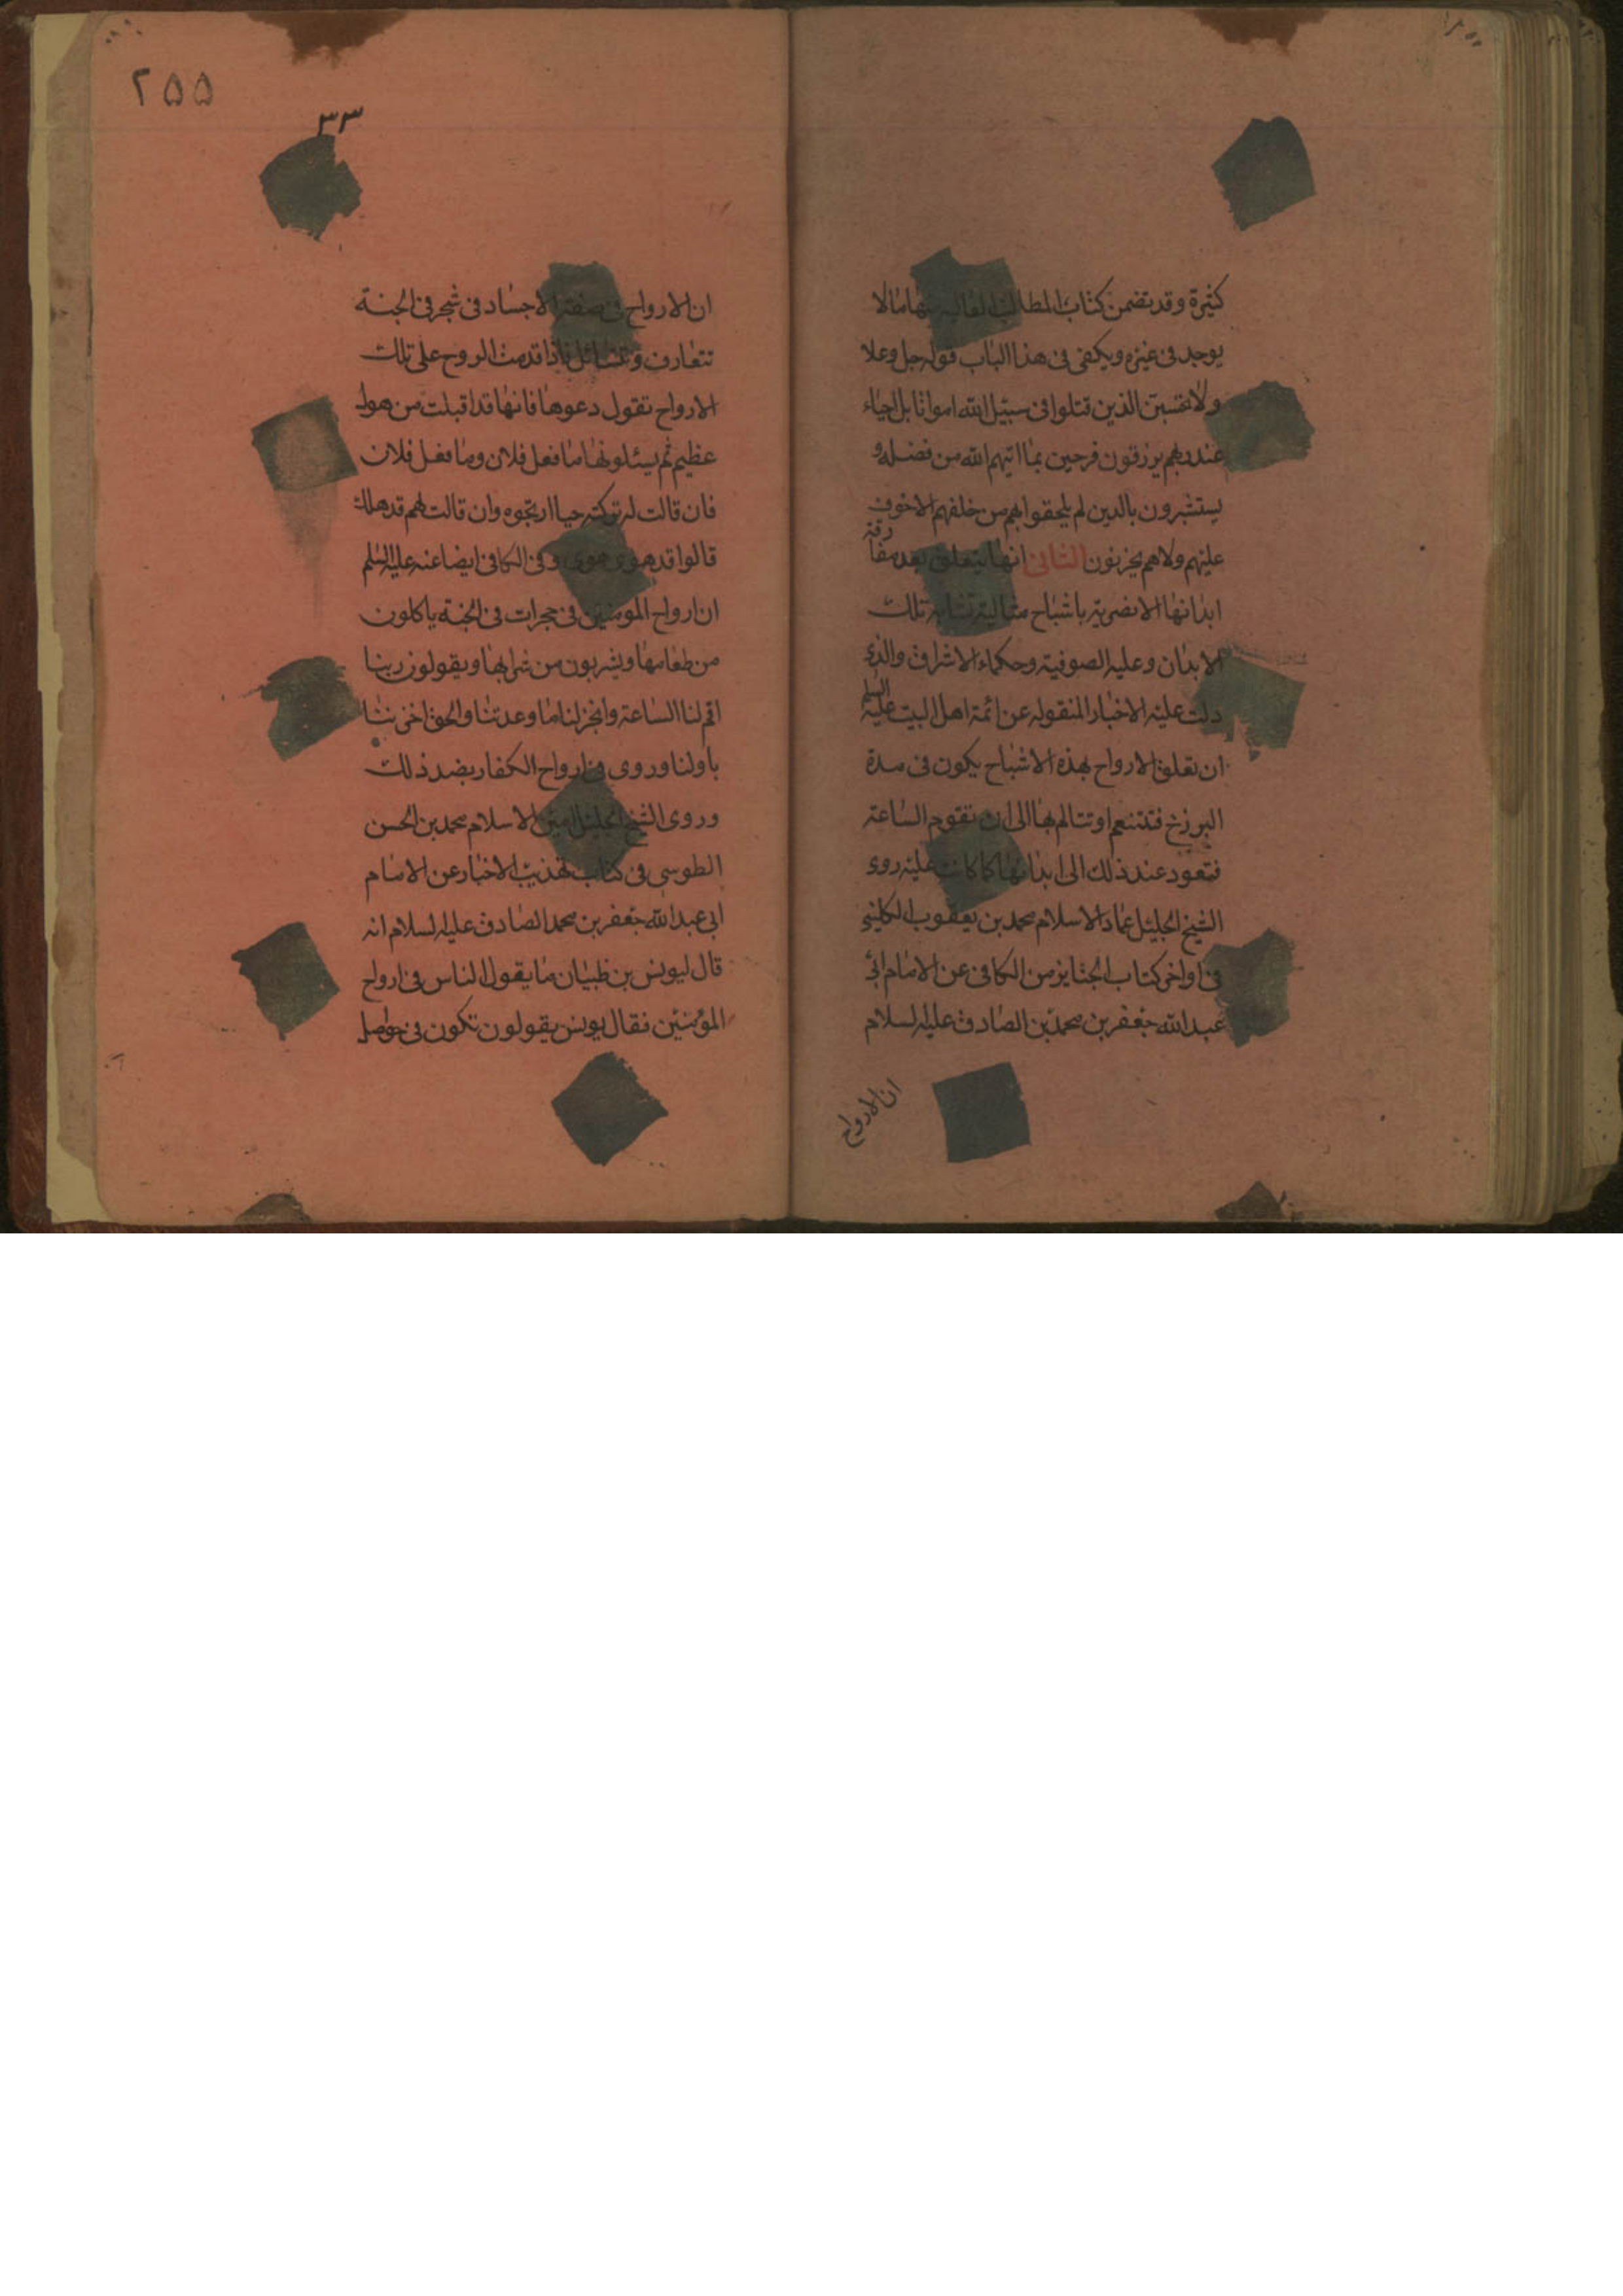 كثيرة وقد تضمن كتاب المطالب العالية منها ما لا
يوجد فى غيره ويكفى فى هذا الباب قوله جل وعلا
ولا تحسبن الذين قتلوا فى سبيل الله امواتا بل احياء
عند ربهم يرزقون فرحين بما اتيهم الله من فضله و
يستبشرون بالذين لم يلحقوا بهم من خلفهم الا خوف
عليهم ولا هم يحزنون الثانى انها تتعلق بعد مفارقة
ابدانها العنصرية باشباح مثالية تشابه تلك
الابدان وعليه الصوفية وحكماء الاشراق والذى
دلت عليه الاخبار المنقوله عن ائمة اهل البيت عليه السلم
ان تعلق الارواح بهذه الاشباح يكون فى مدة
البرزخ فتتنعم او تتالم بها الى ان تقوم الساعة
فتعود عند ذلك الى ابدانها كما كانت عليه روى
الشيخ الجليل عماد الاسلام محمد بن يعقوب الكلينى
فى اواخر كتاب الجنايز من الكافى عن الامام ابى
عبد الله جعفر بن محمد بن الصادق عليه السلام
ان الارواح
٢٥٥
٣٣
ان الارواح فى صفة الاجساد فى شجر فى الجنة
تتعارف وتتسائل فاذا قدمت الروح على تلك
الارواح تقول دعوها فانها قد اقبلت من هول
عظيم ثم يسئلونها ما فعل فلان وما فعل فلان
فان قالت لهم تركته حيا ارتجوه وان قالت لهم قد هلك
قالوا قد هوى هوى وفى الكافى ايضا عنه عليه السلم
ان ارواح المومنين فى حجرات فى الجنة ياكلون
من طعامها ويشربون من شرابها ويقولون ربنا
اقم لنا الساعة وانجز لنا ما وعدتنا والحق اخرنا
باولنا وروى فى ارواح الكفار بضد ذلك
وروى الشيخ الجليل امين الاسلام محمد بن الحسن
الطوسى فى كتاب تهذيب الاخبار عن الامام
ابى عبد الله جعفر بن محمد الصادق عليه السلام انه
قال ليونس بن ظبيان ما يقول الناس فى ارواح
المؤمنين فقال يونس يقولون تكون فى حواصل